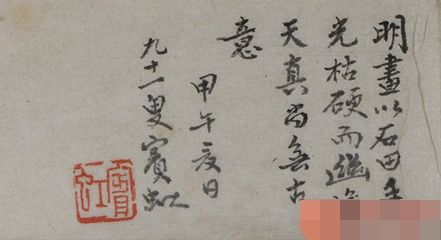 明畫以石田
光枯硬而
天真尚無古
意
甲午夏日
九十一叟賓虹
賓虹